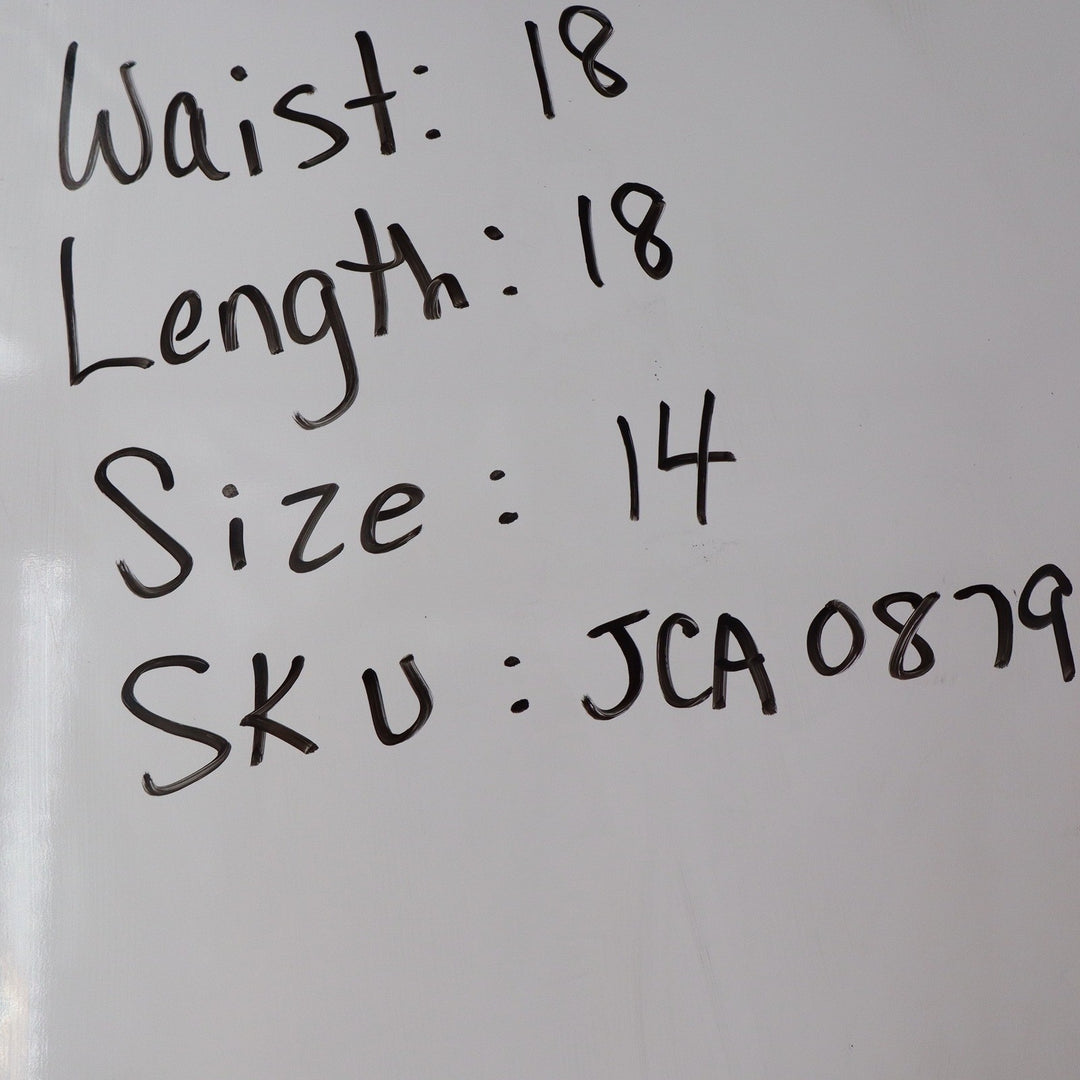 Waist: 18
Length: 18
Size: 14
SKU: JCA0879